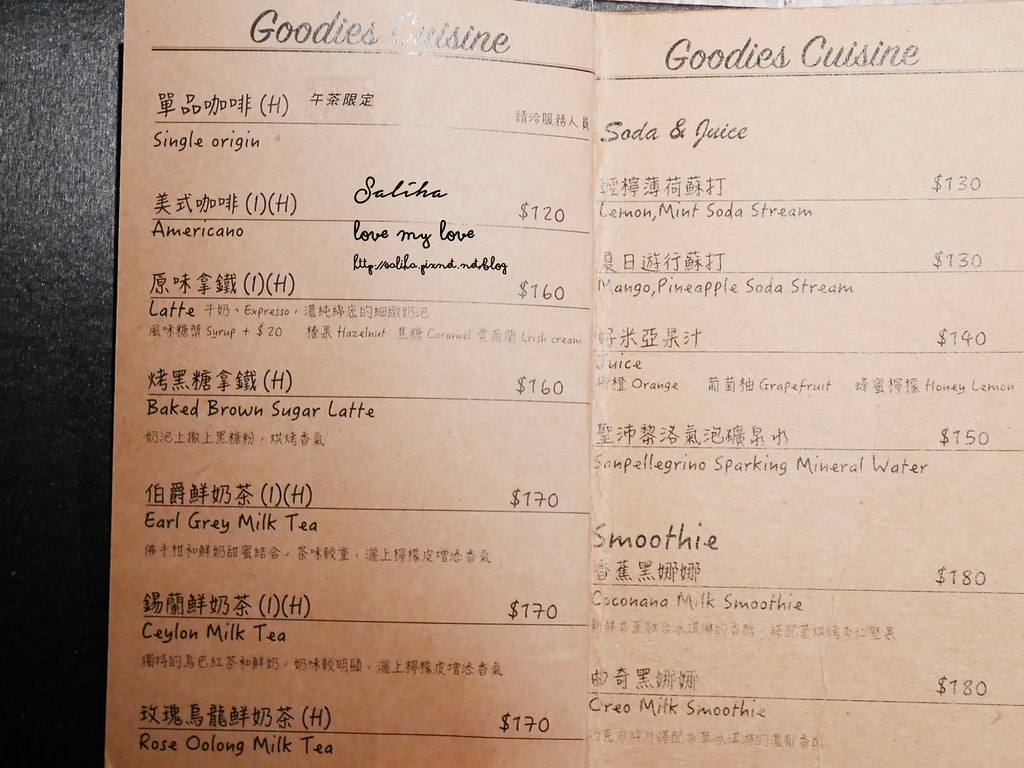 Goodies Cuisine
單品咖啡 (H) 午茶限定
請洽服務人員
Single origin
美式咖啡 (I)(H) $120
Americano
原味拿鐵 (I)(H) $160
Latte 牛奶、Expresso，濃純綿密的細緻奶泡
風味糖漿 Syrup + $20 榛果 Hazelnut 焦糖 Caramel 愛爾蘭 Lrish cream
烤黑糖拿鐵 (H) $160
Baked Brown Sugar Latte
奶泡上撒上黑糖粉，烘烤香氣
伯爵鮮奶茶 (I)(H) $170
Earl Grey Milk Tea
佛手柑和鮮奶甜蜜結合，茶味較重，灑上檸檬皮增添香氣
錫蘭鮮奶茶 (I)(H) $170
Ceylon Milk Tea
獨特的烏巴紅茶和鮮奶，奶味較明顯，灑上檸檬皮增添香氣
玫瑰烏龍鮮奶茶 (H) $170
Rose Oolong Milk Tea
Saliha
love my love
http://saliha.pixnet.net/blog
Goodies Cuisine
Soda & Juice
輕檸薄荷蘇打 $130
Lemon,Mint Soda Stream
夏日遊行蘇打 $130
Mango,Pineapple Soda Stream
好米亞果汁 $140
Juice
柳橙 Orange 葡萄柚 Grapefruit 蜂蜜檸檬 Honey Lemon
聖沛黎洛氣泡礦泉水 $150
Sanpellegrino Sparking Mineral Water
Smoothie
香蕉黑娜娜 $180
Coconana Milk Smoothie
新鮮香蕉融合冰淇淋的香醇，搭配著烘烤杏仁堅果
曲奇黑娜娜 $180
Oreo Milk Smoothie
巧克力碎片搭配香草冰淇淋的濃郁香氣